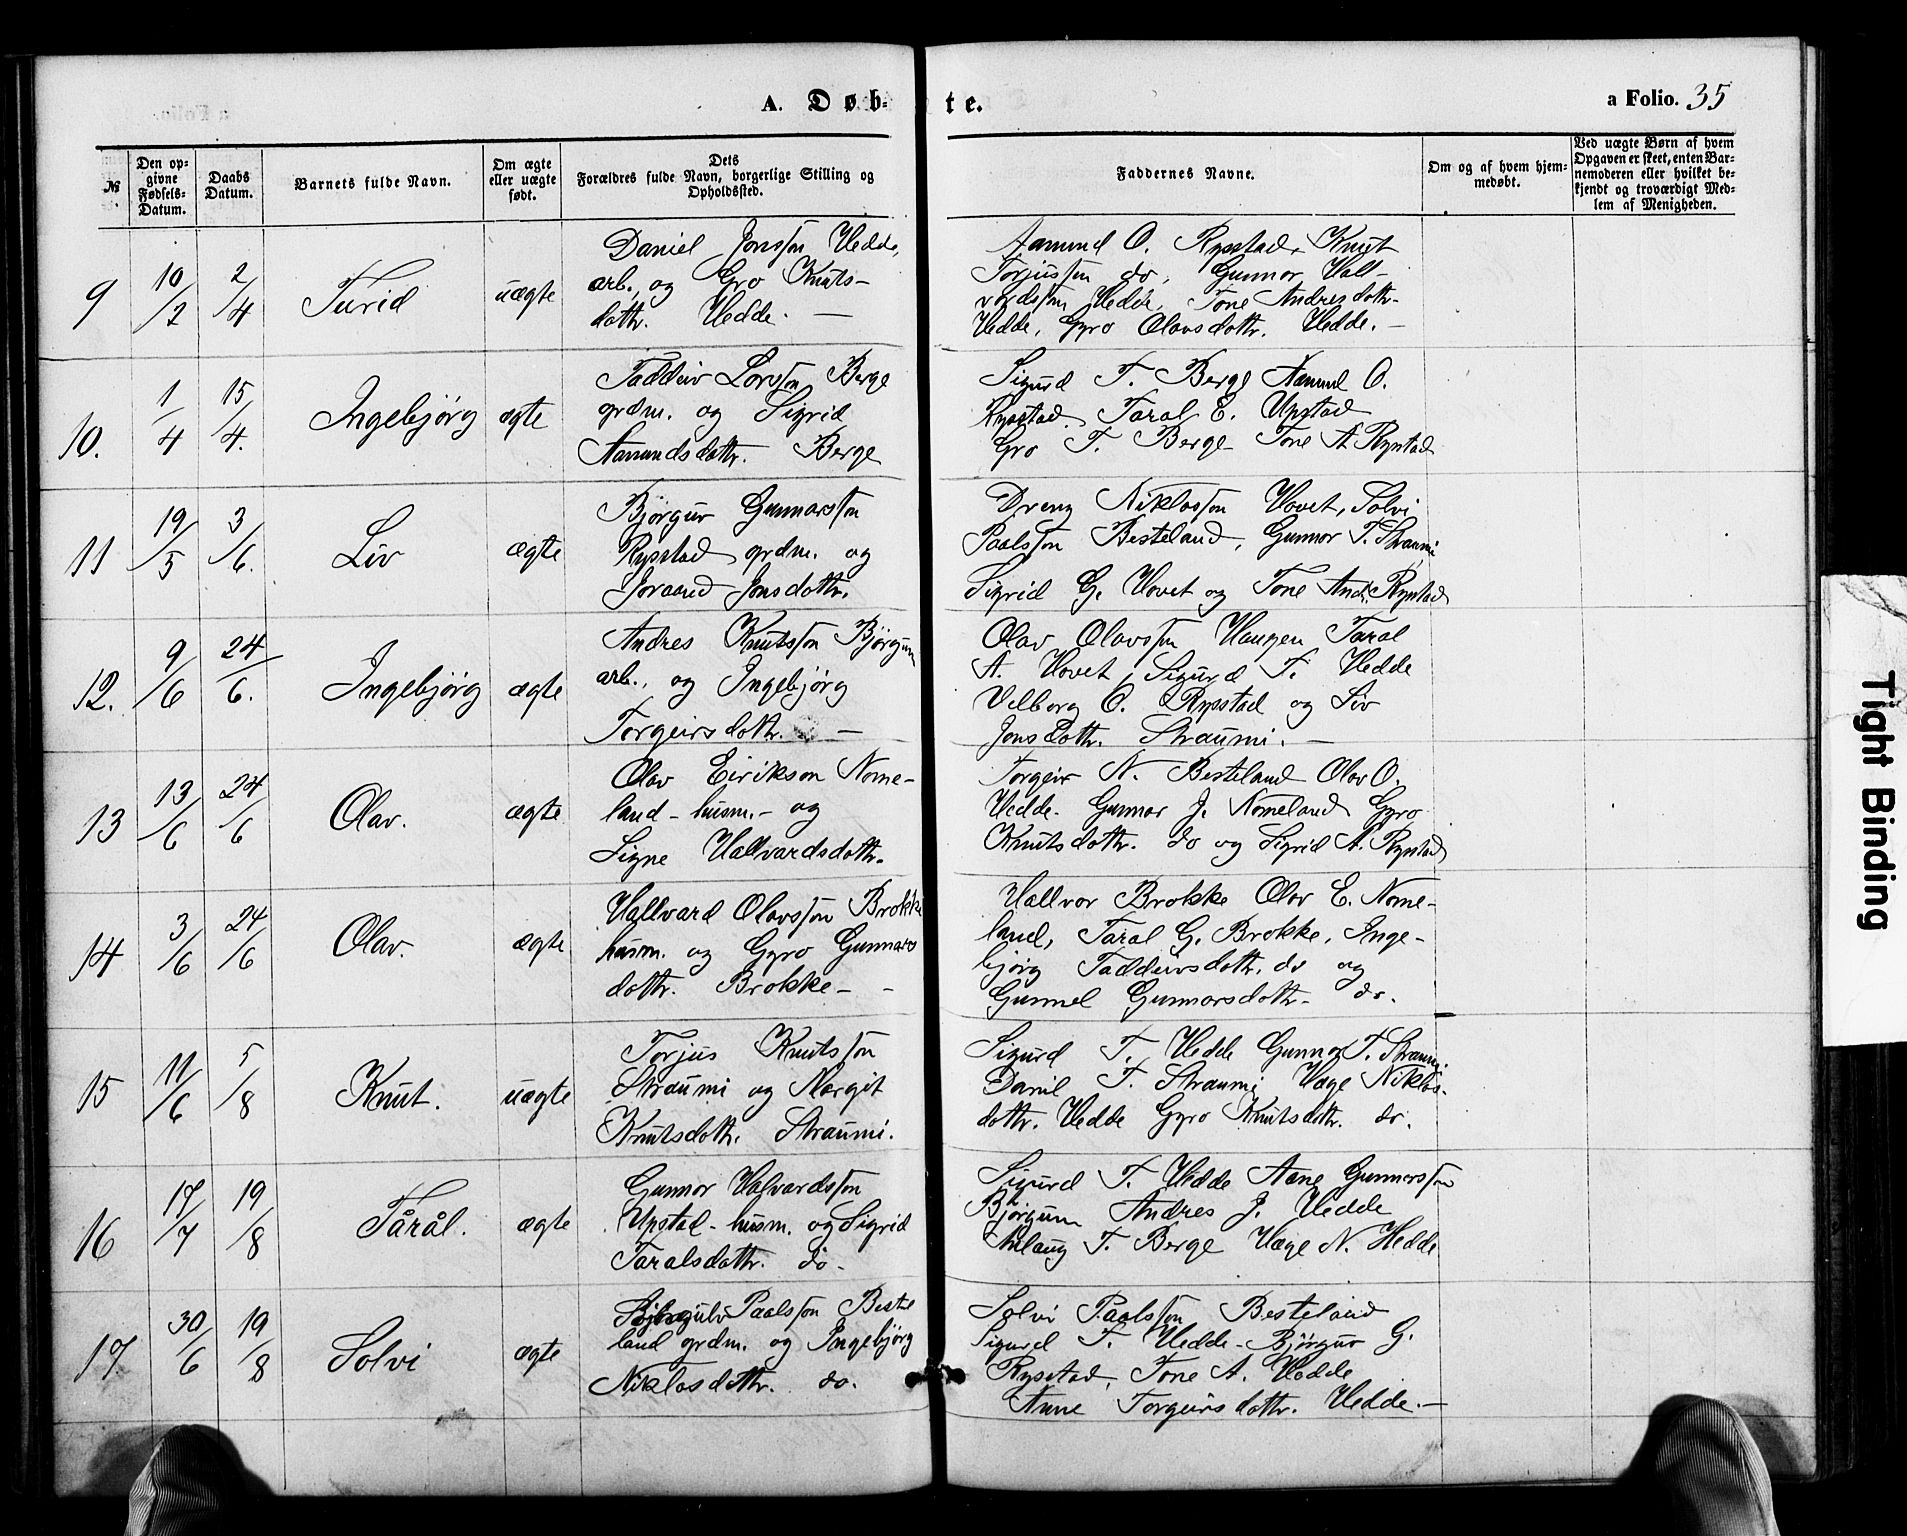 A. Døbte.
a Folio. 35
№
Den opgivne Fødsels-Datum.
Daabs Datum.
Barnets fulde Navn.
Om ægte eller uægte født.
Dets Forældres fulde Navn, borgerlige Stilling og Opholdssted.
Faddernes Navne.
Om og af hvem hjemmedøbt.
Ved uægte Børn af hvem Opgaven er skeet, enten Barnemoderen eller hvilket bekjendt og troværdigt Medlem af Menigheden.
9 10/2 2/4 Turid uægte
Daniel Jonsson Hedde,
arb., og Gro Knuts-
dottr. Hedde. —
Aamund O. Rysstad, Knut
Torjusson do, Gunnar Hall-
vardsson Hedde, Tone Andresdottr.
Hedde, Gyro Olavsdottr. Hedde. —
10. 1/4 15/4. Ingebjörg ægte
Taddeiv Lavsson Berge
grdm. og Sigrid
Aamundsdottr. Berge
Sigurd T. Berge Aamund O.
Rysstad. Taral E. Upstad
Gro T. Berge Tone A. Rystad
11 19/5 3/6. Liv ægte
Björgur Gunnarsson
Rysstad grdm. og
Joraand Jonsdottr.
Dreng Niklosson Hovet, Solvi
Paalsson Besteland, Gunnar T. Straumi
Sigrid G. Hovet og Tone And. Rystad
12. 9/6 24/6. Ingebjörg ægte
Andres Knutsson Björgum
arb., og Ingebjörg
Torgeirsdottr. —
Olav Olavsson Haugen Taral
A. Hovet, Sigurd T. Hedde
Vilborg O. Rysstad og Liv
Jonsdottr. Straumi. —
13 13/6 24/6 Olav. ægte
Olav Eirikson Nome-
land - husm. - og
Signe Hallvardsdottr.
Torgeir N. Besteland Olav O.
Hedde. Gunnar J. Nomeland Gyro
Knutsdottr. do og Sigrid A. Rystad
14 3/6 24/6 Olav. ægte
Hallvard Olavsson Brokke
husm. og Gyro Gunnars
dottr. Brokke - -
Hallvor Brokke Olav E. Nome-
land, Taral G. Brokke, Inge-
björg Taddeivsdottr. do og
Gunnel Gunnarsdottr. do.
15 11/6 5/8 Knut. uægte
Torjus Knutsson
Straumi og Margit
Knutsdottr. Straumi.
Sigurd T. Hedde Gunnar T. Straumi
Daniel T. Straumi Hæge Niklos-
dottr. Hedde Gyro Knutsdottr. do.
16 17/7 19/8 Tårål. ægte
Gunnar Halvardsson
Upstad - husm. og Sigrid
Taralsdottr. do -
Sigurd T. Hedde Aane Gunnarsson
Björgum Andres J. Hedde
Aslaug T. Berge Hæge N. Hedde
17. 30/6 19/8 Solvi ægte
Björgulv Paalsson Beste
land grdm. og Ingebjörg
Niklosdottr. do.
Solvi Paalsson Besteland
Sigurd T. Hedde - Björgur G.
Rysstad, Tone A. Hedde
Anne Torgeirsdottr. Hedde. —
Tight Binding